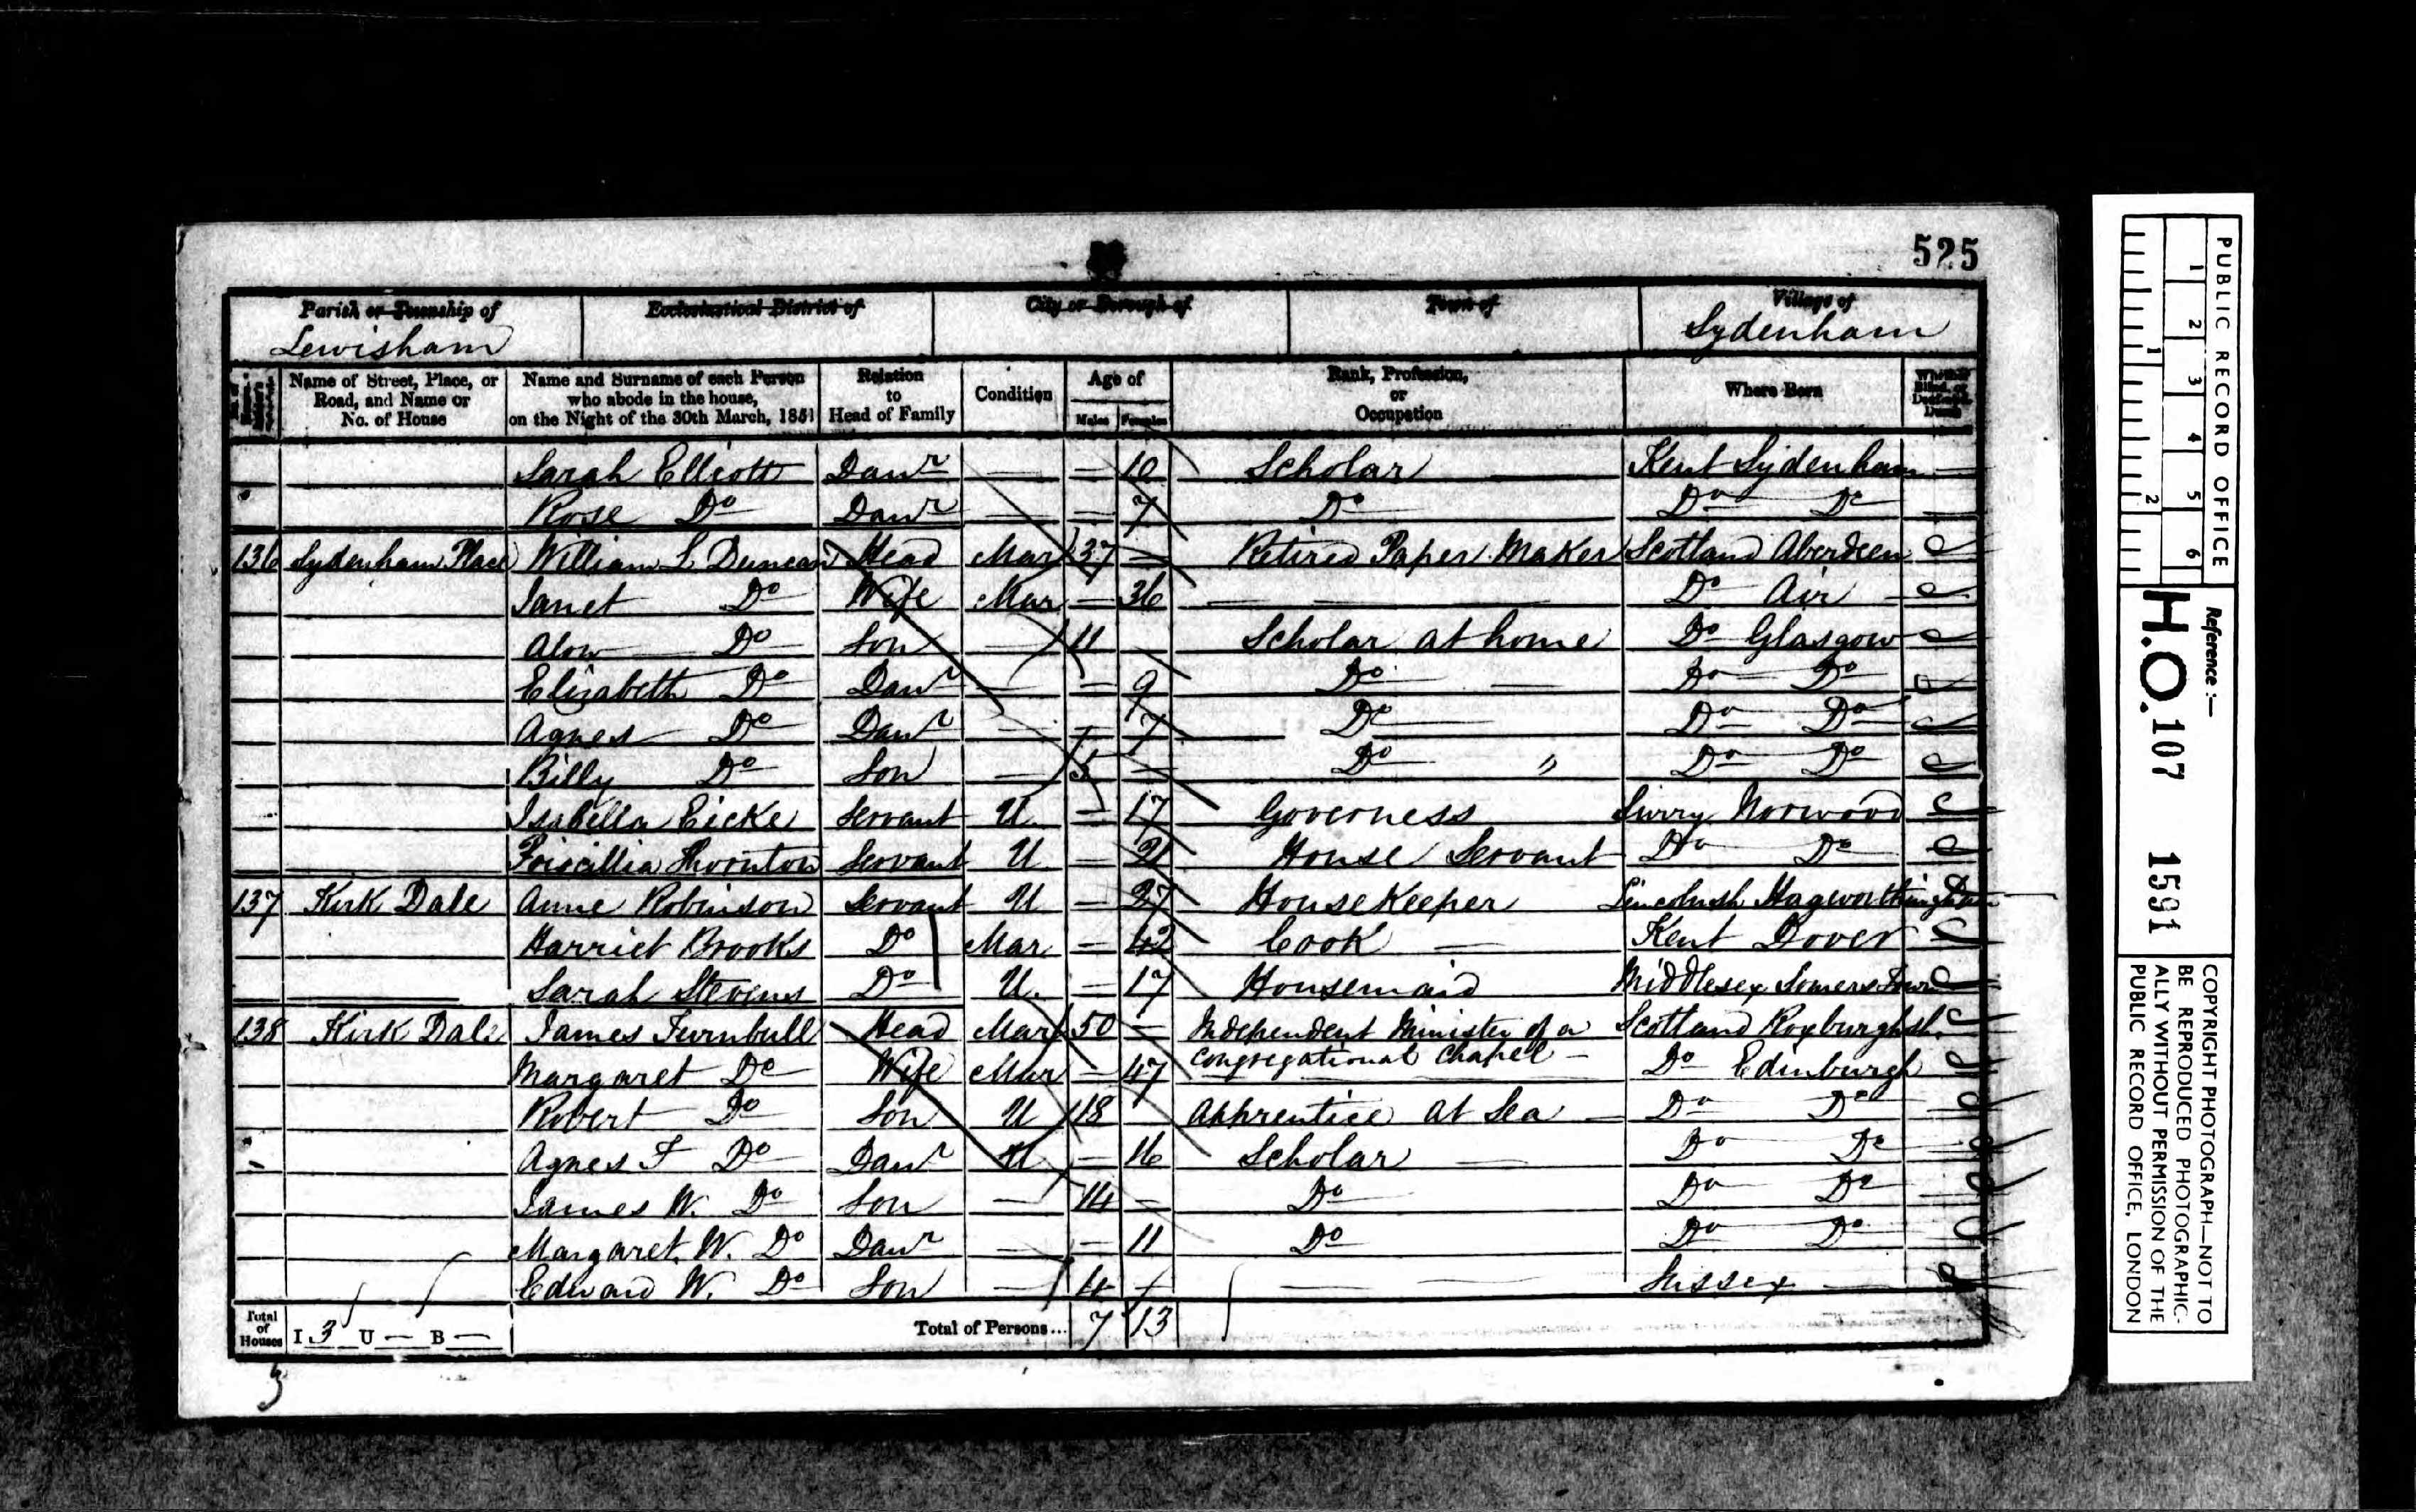 525
Parish or Township of Ecclesiastical District of City or Borough of Town of Village of
Lewisham Sydenham
Name of Street, Place, or Road, and Name or No. of House
Name and Surname of each Person who abode in the house, on the Night of the 30th March, 1851
Relation to Head of Family
Condition
Age of
Males Females
Rank, Profession, or Occupation
Where Born
Whether Blind, or Deaf-and-Dumb
Sarah Ellcott Daur — — 10 Scholar Kent Sydenham
Rose Do Daur — — 7 Do Do Do
136 Sydenham Place William L Duncan Head Mar 37 — Retired Paper Maker Scotland Aberdeen
Janet Do Wife Mar — 36 — — Do Air
Alow Do Son — 11 — Scholar at home Do Glasgow
Elizabeth Do Daur — — 9 Do — Do Do
Agnes Do Daur — — 7 Do Do Do
Billy Do Son — 5 — Do " Do Do
Isabella Eicke Servant U — 17 Governess Surry Norwood
Priscillia Thornton Servant U — 21 House Servant Do Do
137 Kirk Dale Anne Robinson Servant U — 27 HouseKeeper Lincolnsh Hagworthingham
Harriet Brooks Do Mar — 42 Cook — Kent Dover
Sarah Stevens Do U. — 17 Housemaid Middlesex Somers Town
138 Kirk Dale James Turnbull Head Mar 50 — Independent Minister of a Scotland Roxburghsh.
Margaret Do Wife Mar — 47 Congregational Chapel — Do Edinburgh
Robert Do Son U 18 — Apprentice at Sea — Do Do
Agnes F Do Daur U — 16 Scholar — Do Do
James W. Do Son — 14 — Do Do Do
Margaret. W. Do Daur — — 11 Do Do Do
Edward W. Do Son — 4 — — — Sussex —
Total of Houses I 3 U — B — Total of Persons... 7 13
3
PUBLIC RECORD OFFICE
1 2 3 4 5 6
1 2
Reference:—
H.O. 107 1591
COPYRIGHT PHOTOGRAPH—NOT TO
BE REPRODUCED PHOTOGRAPHIC-
ALLY WITHOUT PERMISSION OF THE
PUBLIC RECORD OFFICE, LONDON